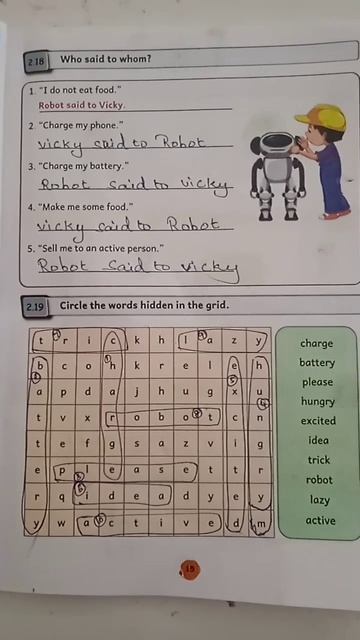 2.18 Who said to whom?
1. "I do not eat food."
Robot said to Vicky.
2. "Charge my phone."
vicky said to Robot
3. "Charge my battery."
Robot said to vicky
4. "Make me some food."
vicky said to Robot
5. "Sell me to an active person."
Robot said to vicky
2.19 Circle the words hidden in the grid.
t r i c k h l a z y
b c o h k r e l e h
a p d a j h u g x u
t v x r o b o t c n
t e f g s a z v i g
e p l e a s e t t r
r q i d e a d y e y
y w a c t i v e d m
charge
battery
please
hungry
excited
idea
trick
robot
lazy
active
15